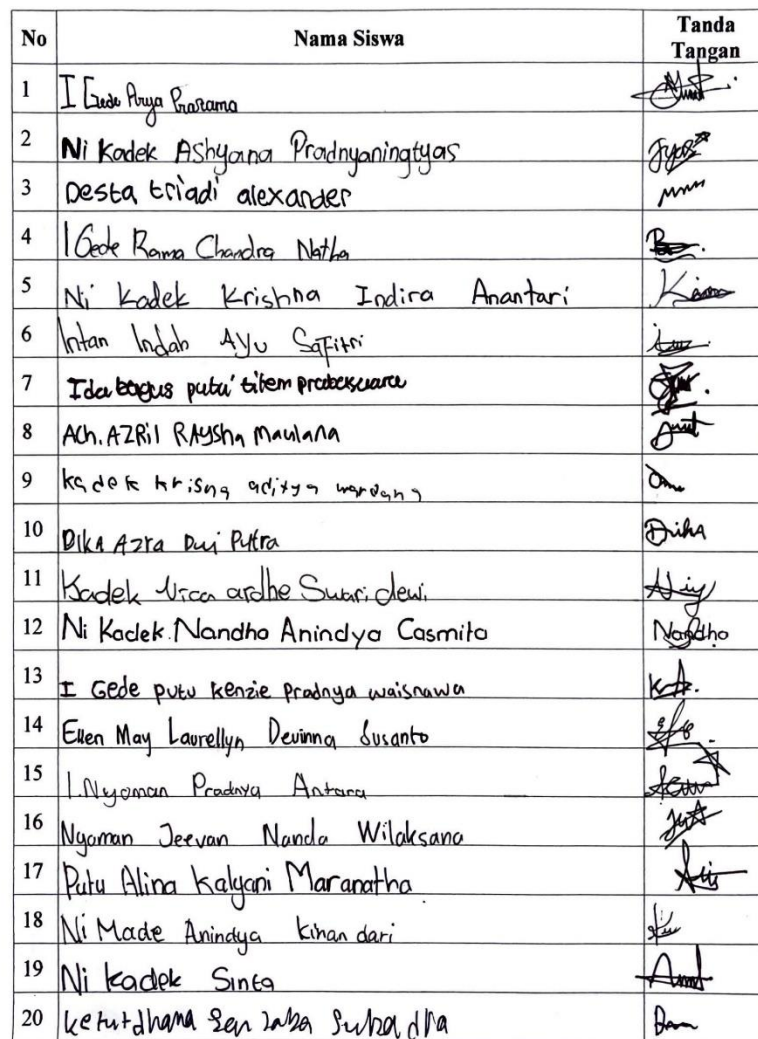 No Nama Siswa Tanda Tangan
1 I Gede Arya Pratama
2 Ni Kadek Ashyana Pradnyaningtyas
3 Desta triadi alexander
4 I Gede Rama Chandra Natha
5 Ni Kadek Krishna Indira Anantari
6 Intan Indah Ayu Safitri
7 Ida bagus putu titem
8 ACh. AZRil RAYSha Maulana
9 kadek krisna aditya wardana
10 DIKA AZra Dwi Putra Dika
11 Kadek ardhe Swari dewi
12 Ni Kadek Nandho Anindya Casmita Nandho
13 I Gede putu kenzie pradnya waisnawa
14 Ellen May Laurellyn Devinna Susanto
15 I.Nyoman Pradnya Antara
16 Nyoman Jeevan Nanda Wilaksana
17 Putu Alina Kalyani Maranatha
18 Ni Made Anindya Kinandari
19 Ni Kadek Sinta
20 ketut dhana